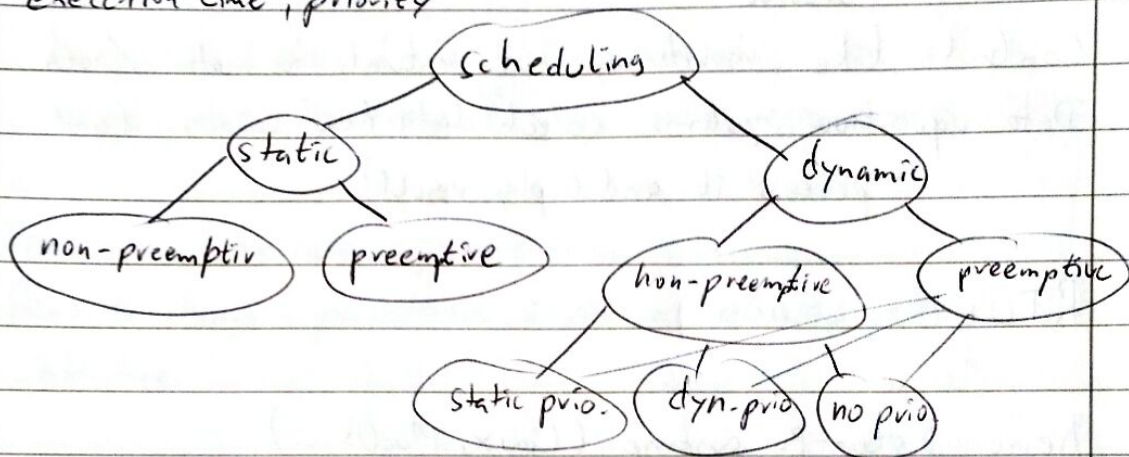 execution time, priority
scheduling
static
dynamic
non-preemptiv
preemptive
non-preemptive
preemptive
static prio.
dyn.prio
no prio